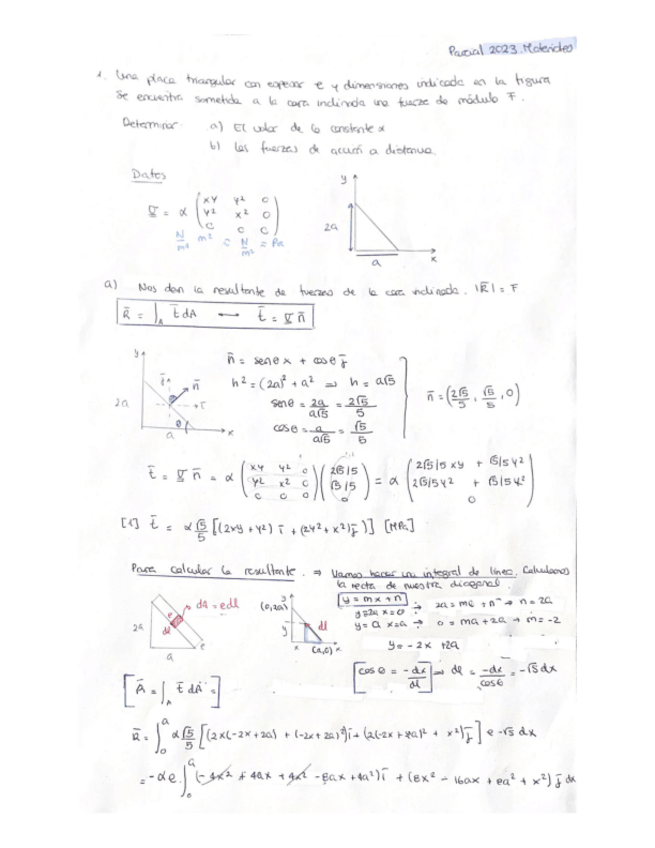 Parcial 2023. Materiales
1. Una placa triangular con espesor e y dimensiones indicada en la figura
Se encuentra sometida a la cara inclinada una fuerza de módulo F.
Determinar a) El valor de la constante α
b) Las fuerzas de acción a distancia.
Datos
σ̿ = α ( xy y² 0
y² x² 0
0 0 0 )
N/m⁴ m² = N/m² = Pa
y
2a
a
x
a) Nos dan la resultante de fuerzas de la cara inclinada. |R̄| = F
R̄ = ∫_A t̄ dA — t̄ = σ̿ n̄
y
2a
n̄
θ
a
x
n̄ = senθ x + cosθ j̄
h² = (2a)² + a² ⇒ h = a√5
senθ = 2a/a√5 = 2√5/5
cosθ = a/a√5 = √5/5
n̄ = (2√5/5, √5/5, 0)
t̄ = σ̿ n̄ = α ( xy y² 0
y² x² 0
0 0 0 ) ( 2√5/5
√5/5
0 ) = α ( 2√5/5 xy + √5/5 y²
2√5/5 y² + √5/5 x²
0 )
[1] t̄ = α √5/5 [(2xy + y²) ī + (2y² + x²) j̄] [MPa]
Para calcular la resultante. ⇒ Vamos hacer un integral de línea. Calculamos
la recta de nuestra diagonal
2a
a
e
dl
dA = edl
(0,2a)
y
x
(a,0)
dl
y = mx + n
y=2a x=0 ; 2a = m0 + n → n = 2a
y=0 x=a → 0 = ma + 2a → m = -2
y = -2x + 2a
[cosθ = -dx/dl] ⇒ dl = -dx/cosθ = -√5 dx
[R̄ = ∫_A t̄ dA =]
R̄ = ∫₀ᵃ α √5/5 [(2x(-2x + 2a) + (-2x + 2a)²) ī + (2(-2x + 2a)² + x²) j̄] e -√5 dx
= -αe ∫₀ᵃ (-4x² + 4ax + 4x² - 8ax + 4a²) ī + (8x² - 16ax + 8a² + x²) j̄ dx